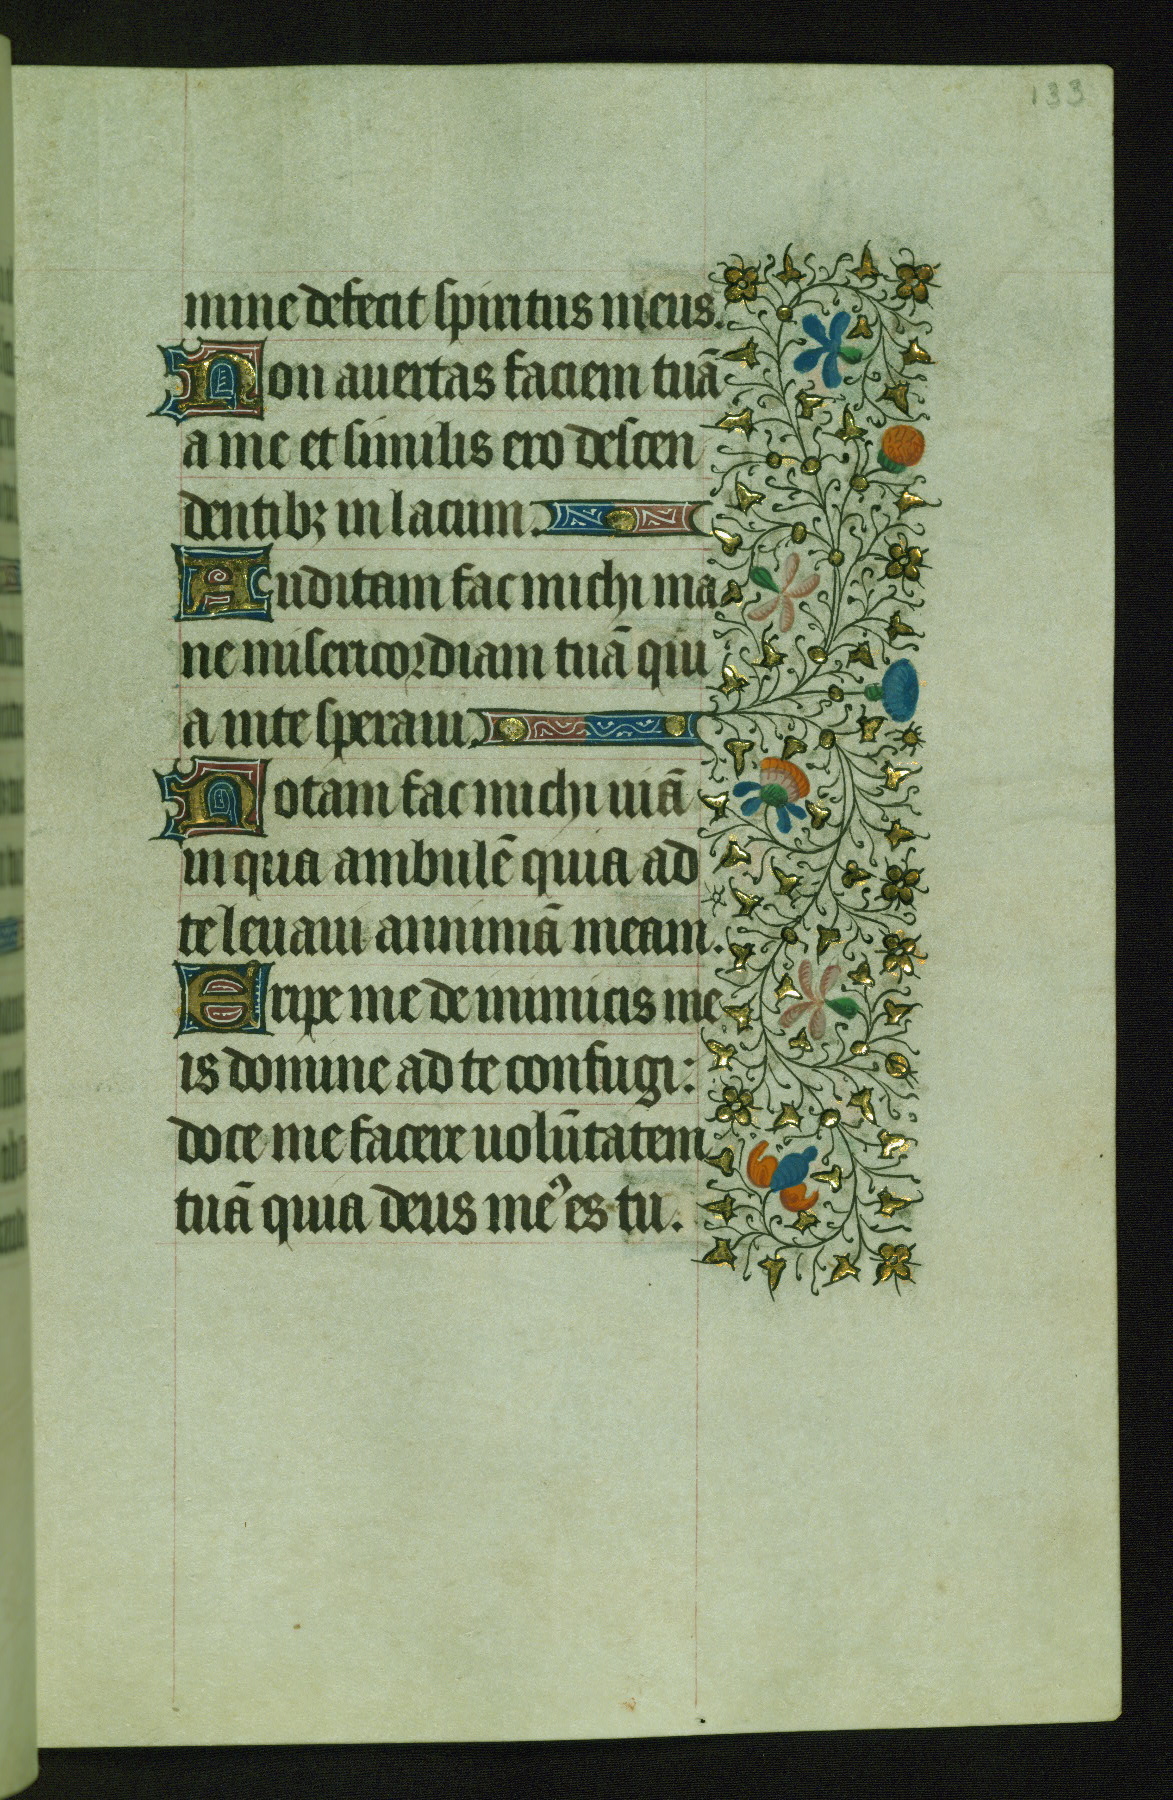 133
mine defecit spiritus meus.
Non auertas faciem tuā
a me et similis ero descen
dentibꝫ in lacum.
Auditam fac michi ma
ne misericordiam tuā qui
a in te speraui.
Notam fac michi uiā
in qua ambulē quia ad
te leuaui animmā meam.
Eripe me de inimicis me
is domine ad te confugi:
doce me facere uolūtatem
tuā quia deus mē᾿ es tu.